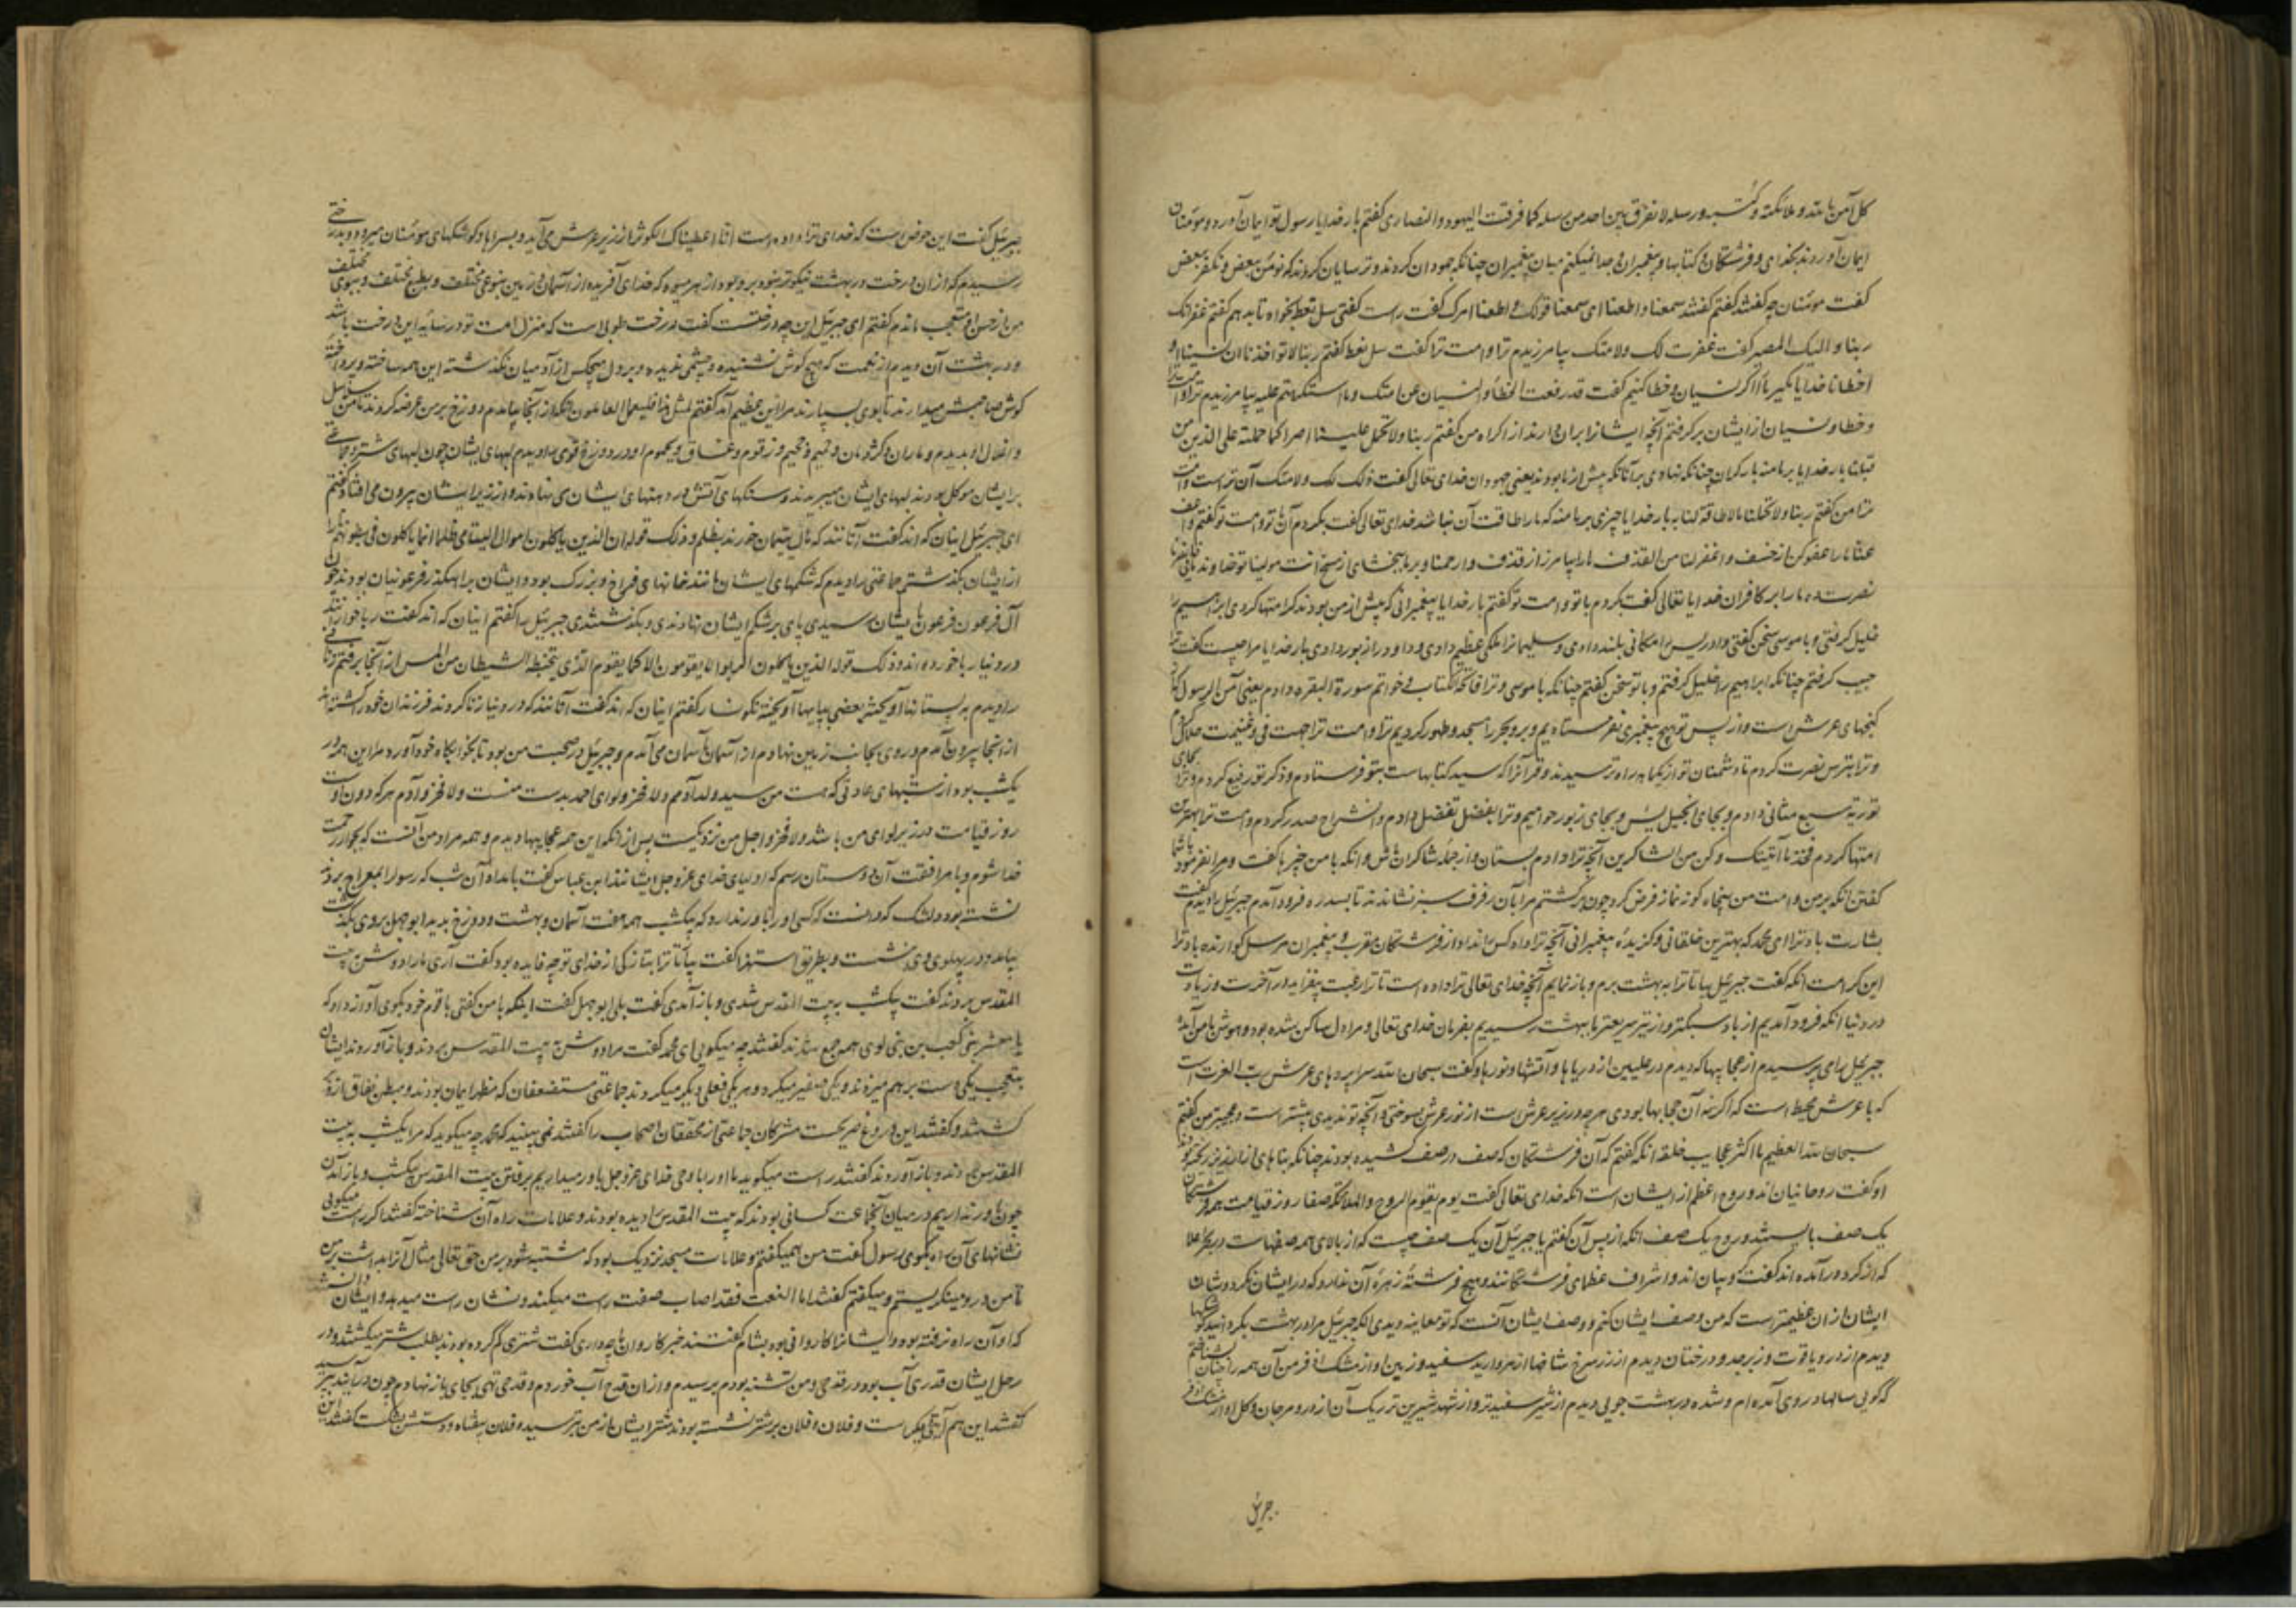 کل آمن بالله و ملائکته و کتبه و رسله لا نفرق بین احد من رسله کما فرقت الیهود و النصاری گفتم بار خدایا رسول تو ایمان آورد و مومنان
ایمان آوردند بخدای و فرشتگان و کتابها و پیغمبران و جدا نمیکنم میان پیغمبران چنانکه جهودان کردند و ترسایان کردند که نومن ببعض و نکفر ببعض
گفت مومنان چه گفتند گفتم گفتند سمعنا و اطعنا ای سمعنا قولک و اطعنا امرک گفت راست گفتی سل تعط بخواه تا بدهم گفتم غفرانک
ربنا و الیک المصیر گفت غفرت لک و لامتک بیامرزیدم ترا و امت ترا گفت سل تعط گفتم ربنا لا تواخذنا ان نسینا او
اخطانا خدایا مگیر ما را اگر نسیان و خطا کنیم گفت قد رفعت الخطا و النسیان عن امتک و ما استکرهتم علیه بیامرزیدم ترا و امت ترا
و خطا و نسیان از ایشان برگرفتم آنچه ایشانرا بران دارند از اکراه من گفتم ربنا و لا تحمل علینا اصرا کما حملته علی الذین من
قبلنا بار خدایا بر ما منه بار گران چنانکه نهادی بر آنانکه پیش از ما بودند یعنی جهودان خدای تعالی گفت ذلک لک و لامتک آن تراست و امت
ترا من گفتم ربنا و لا تحملنا ما لا طاقة لنا به بار خدایا چیزی بر ما منه که ما را طاقت آن نباشد خدای تعالی گفت بکردم آن با تو و امت تو گفتم و اعف
عنا ما را عفو کن از خسف و اغفر لنا من القذف ما را بیامرز از قذف و ارحمنا و بر ما ببخشای از مسخ انت مولینا تو خداوند مائی فانصرنا
نصرت ده ما را بر کافران خدای تعالی گفت کردم با تو و امت تو گفتم بار خدایا پیغمبرانی که پیش از من بودند کرامتها کردی ابراهیم را
خلیل گرفتی و با موسی سخن گفتی و ادریس را مکانی بلند دادی و سلیمانرا ملکی عظیم دادی و داود را زبور دادی بار خدایا مرا چیست گفت ترا
حبیب گرفتم چنانکه ابراهیم را خلیل گرفتم و با تو سخن گفتم چنانکه با موسی و ترا فاتحة الکتاب و خواتم سورة البقره دادم یعنی آمن الرسول که از
گنجهای عرش است و از پس تو هیچ پیغمبری نفرستاده‌یم و بر و بحر را مسجد و طهور کردیم ترا و امت ترا جهت فی و غنیمت حلال کردم
و ترا بترس نصرت کردم تا دشمنان تو از یکماهه راه ترسیدند و قرآنرا که سید کتابهاست بتو فرستادم و ذکر تو رفیع کردم و ترا بجای
توریه سبع مثانی دادم و بجای انجیل یس و بجای زبور حوامیم و ترا بفضل تفضیل دادم و انشراح صدر کردم و امت ترا بهترین
امتها کردم فخذ ما آتیتک و کن من الشاکرین آنچه ترا دادم بستان و از جمله شاکران باش و انکه با من خبرها گفت و مرا نفرمود با شما
گفتن انکه بر من و امت من پنجاه گونه نماز فرض کرد چون برگشتم مرا بآن رفرف سبز نشاندند تا بسدره فرود آمدم جبرئیل را دیدم گفت
بشارت باد ترا ای محمد که بهترین خلقانی و گزیده پیغمبرانی آنچه ترا داد کس را نداد از فرشتگان مقرب و پیغمبران مرسل گوارنده باد ترا
این کرامت انکه گفت جبرئیل بیا تا ترا به بهشت برم و باز نمایم آنچه خدای تعالی ترا داده است تا ترا رغبت بیفزاید در آخرت و زیادت
در دنیا انکه فرود آمدیم از باد سبکتر و از تیر سریعتر تا ببهشت رسیدیم بفرمان خدای تعالی و مرا دل ساکن شده بود و هوش با من آمده
جبرئیل را می پرسیدم از عجایبها که دیدم در علیین از دریاها و آتشها و نورها و گفت سبحان الله سراپردهای عرش رب العزت است
که با عرش محیط است که اگر نه آن حجابها بودی هرچه در زیر عرش است از نور عرش بسوختی و آنچه تو ندیدی بیشتر است و عجیبتر من گفتم
سبحان الله العظیم ما اکثر عجایب خلقه انکه گفتم که آن فرشتگان که صف در صف کشیده بودند چنانکه بناهای از ارزیز ریخته بود
او گفت روحانیان اند و روح اعظم از ایشان است انکه خدای تعالی گفت یوم یقوم الروح و الملائکة صفا روز قیامت همه فرشتگان
یک صف بایستند و روح یک صف انکه از پس آن گفتم یا جبرئیل آن یک صف چیست که از بالای همه صفهاست در بحر اعلا
که از گرد در آمده اند گفت کروبیان اند و اشراف عظمای فرشتگانند و هیچ فرشته زهره آن ندارد که در ایشان نگرد و شان
ایشان از ان عظیمتر است که من وصف ایشان کنم و وصف ایشان آنست که تو معاینه دیدی انکه جبرئیل مرا در بهشت بگردانید کوشکها
دیدم از در و یاقوت و زبرجد و درختان دیدم از زر سرخ شاخها از مروارید سفید و زمین او از مشک اذفر من آن همه را چنان شناختم
که گویی سالها در وی آمده ام و شده در بهشت جویی دیدم از شیر سفیدتر و از شهد شیرین تر ریگ آن از در و مرجان و گل او از مشک اذفر
جبرئیل
جبرئیل گفت این حوض است که خدای ترا داده است انا اعطیناک الکوثر از زیر عرش می آید و بسراها و کوشکهای مومنان میرود و بدرختی
رسیدم که ازان درخت در بهشت نیکوتر نبود بر و بود از هر میوه که خدای آفریده از آسمان و زمین بنوعی مختلف و بطعم مختلف و ببوی مختلف
من از حسن او متعجب ماندم گفتم ای جبرئیل این چه درختست گفت درخت طوبی است که منزل امت تو در سایه این درخت باشد
و در بهشت آن دیدم از نعمت که هیچ گوش نشنیده و چشمی ندیده و بر دل هیچکس از آدمیان نگذشته این همه ساخته و پرداخته
گوش صاحبش میدارند تا بوی بسپارند مرا این عظیم آمد گفتم لمثل هذا فلیعمل العاملون انکه از آنجا بیامدم دوزخ بر من عرضه کردند تا من سلاسل
و اغلال او بدیدم و ماران و کژدمان و حمیم و زقوم و غساق و یحموم او در دوزخ قومی را دیدم لبهای ایشان چون لبهای شتر و جماعتی
بر ایشان موکل بودند لبهای ایشان میبریدند و سنگهای آتش در دهنهای ایشان می نهادند و از زیر ایشان بیرون می افتاد گفتم
ای جبرئیل اینان که اند گفت آنانند که مال یتیمان خورند بظلم و ذلک قوله ان الذین یاکلون اموال الیتامی ظلما انما یاکلون فی بطونهم نارا
از ایشان بگذشتم جماعتی را دیدم که شکمهای ایشان مانند خانهای فراخ و بزرگ بود و ایشان براهگذر فرعونیان بودند چون
آل فرعون و فرعون بایشان رسیدی پای بر شکم ایشان نهادندی و بگذشتندی جبرئیل را گفتم اینان که اند گفت رباخوارانند
در دنیا ربا خورده اند و ذلک قوله الذین یاکلون الربوا لا یقومون الا کما یقوم الذی یتخبطه الشیطان من المس از آنجا برفتم زنانی
را دیدم به پستانها آویخته و بعضی بپایها آویخته نگونسار گفتم اینان که اند گفت آنانند که در دنیا زنا کردند و فرزندان خود را کشته اند
از آنجا بیرون آمدم و روی بجانب زمین نهادم از آسمان بآسمان می آمدم و جبرئیل در صحبت من بود تا بخوابگاه خود آورد مرا این همه در
یکشب بود از شبهای عادتی که هست من سید ولد آدمم و لا فخر و لوای احمد بدست منست و لا فخر و آدم هرکه دون اوست
روز قیامت در زیر لوای من باشد و لا فخر و اجل من نزدیکست پس از انکه این همه عجایبها دیدم و همه مراد من آنست که بجوار رحمت
خدا شوم و با مرافقت آن دوستان رسم که اولیای خدای عز و جل ایشانند ابن عباس گفت بامداد آن شب که رسول را بمعراج بردند
نشسته بود دلتنگ که دانست که کسی او را باور ندارد که یکشب همه هفت آسمان و بهشت و دوزخ بدید ابوجهل بر وی بگذشت
بیامد و در پهلوی وی نشست و بطریق استهزا گفت بیا تا ترا بتازگی از خدای تو چه فایده بود گفت آری مرا دوش به بیت
المقدس بردند گفت یکشب به بیت المقدس شدی و باز آمدی گفت بلی ابوجهل گفت اینکه با من گفتی با قوم خود بگوی آواز داد که
یا معشر بنی کعب بن بنی لوی همه جمع شدند گفتند چه میگویی ای محمد گفت مرا دوش به بیت المقدس بردند و باز آوردند ایشان
بتعجب یکی دست بر هم میزدند و یکی صفیر میکرد و هر یکی فعلی دیگر میکردند جماعتی مستضعفان که مظهر ایمان بودند و مبطن نفاق بازپس
گشتند و گفتند این دروغ صریحست مشرکان جماعتی از محققان اصحاب را گفتند نمی بینید که محمد چه میگوید که مرا یکشب به بیت
المقدس بردند و باز آوردند گفتند راست میگوید ما او را با وحی خدای عز و جل باور میداریم برفتن بیت المقدس یکشب و باز آمدن
چون باور نداریم در میان آنجماعت کسانی بودند که بیت المقدس را دیده بودند و علامات راه آن شناخته گفتند اگر راست میگویی
نشانهای آن راه بگوی رسول گفت من همیگفتم و علامات مسجد نزدیک بود که مشتبه شود بر من حق تعالی مثال آنرا بداشت برابر من
تا من درو مینگریستم و میگفتم گفتند اما النعت فقد اصاب صفت راست میکند و نشان راست میدهد و ایشان دانستند
که او آن راه نرفته بود و ایشانرا کاروانی بود بشام گفتند خبر کاروان ما چه داری گفت شتری گم کرده بودند بطلب شتر میگشتند و در
رحل ایشان قدری آب بود در قدحی و من تشنه بودم برسیدم و ازان قدح آب خوردم و قدح تهی بجای باز نهادم چون درآیند بپرسید
گفتند این هم آیتی دیگر است و فلان و فلان بر شتر نشسته بودند شتر ایشان از من بترسید و فلان بیفتاد و دستش بشکست گفتند این